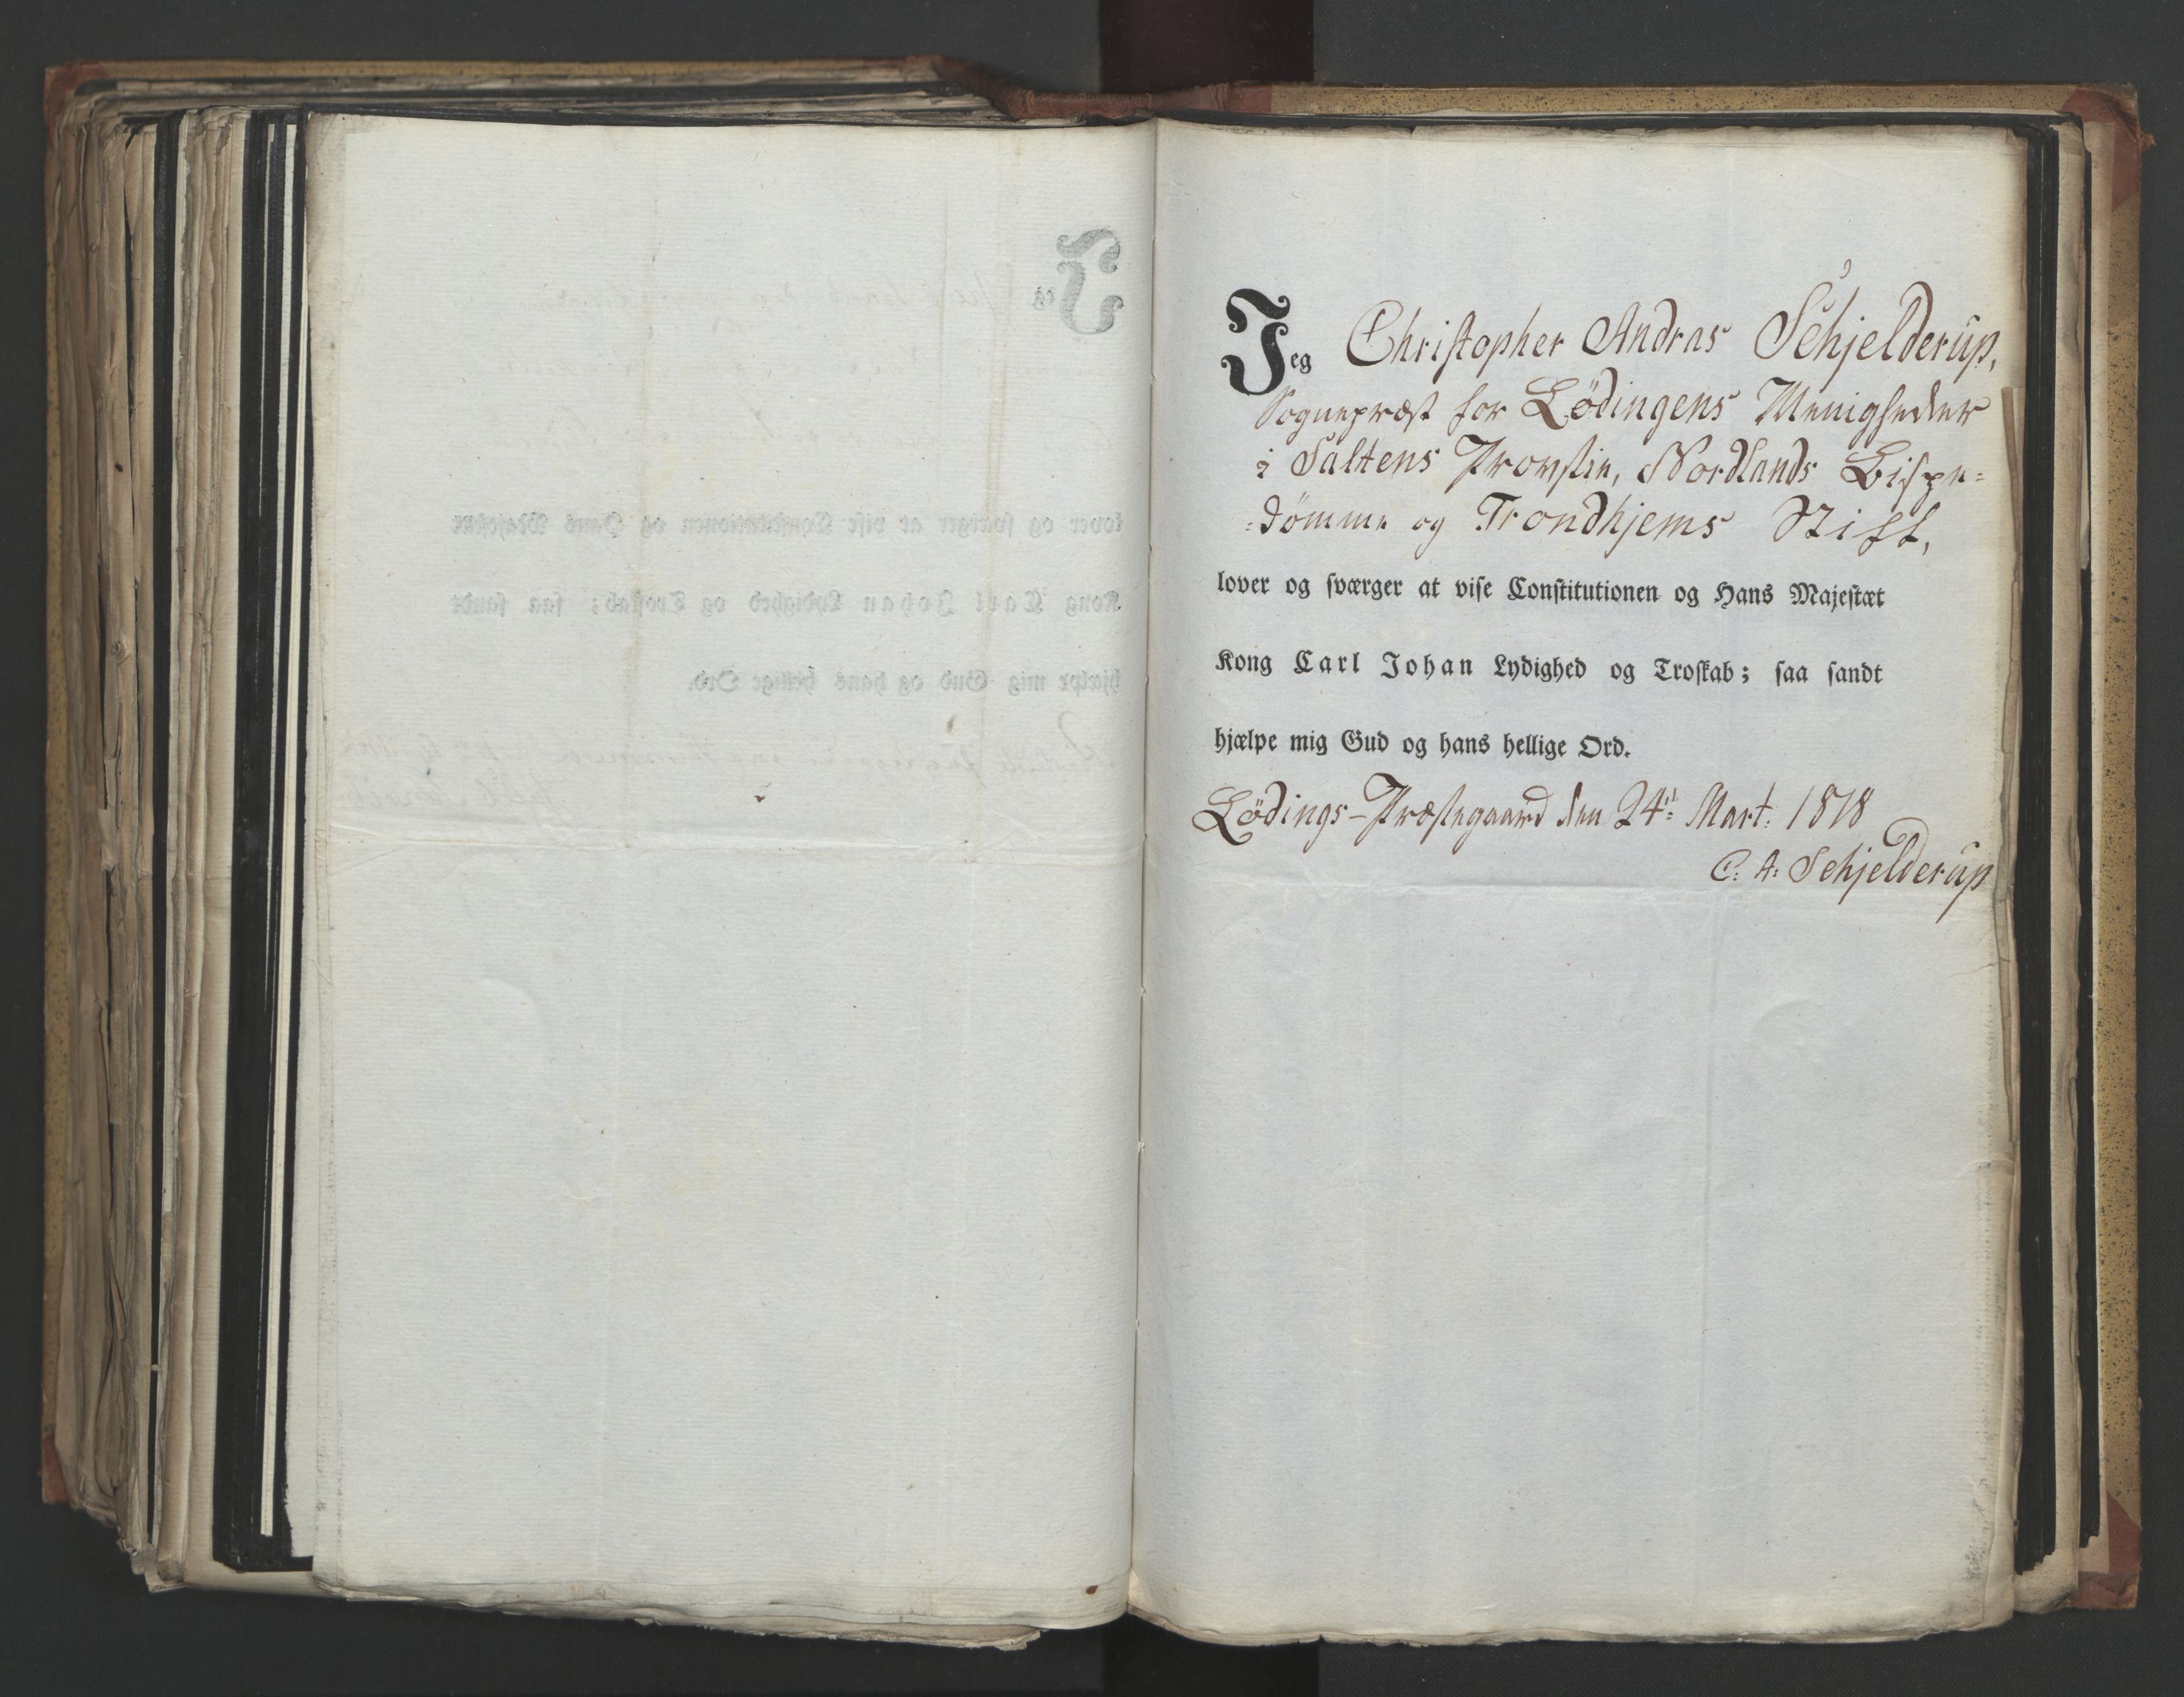 Jeg Christopher Andras Schjelderup,
Sognepræst for Lödingens Menigheder
i Saltens Provstie, Nordlands Bispe=
=dömme og Trondhjems Stift,
lover og sværger at vise Constitutionen og Hans Majestæt
Kong Carl Johan Lydighed og Troskab; saa sandt
hjælpe mig Gud og hans hellige Ord.
Lödings-Præstegaard den 24d: Mart: 1818
C: A: Schjelderup